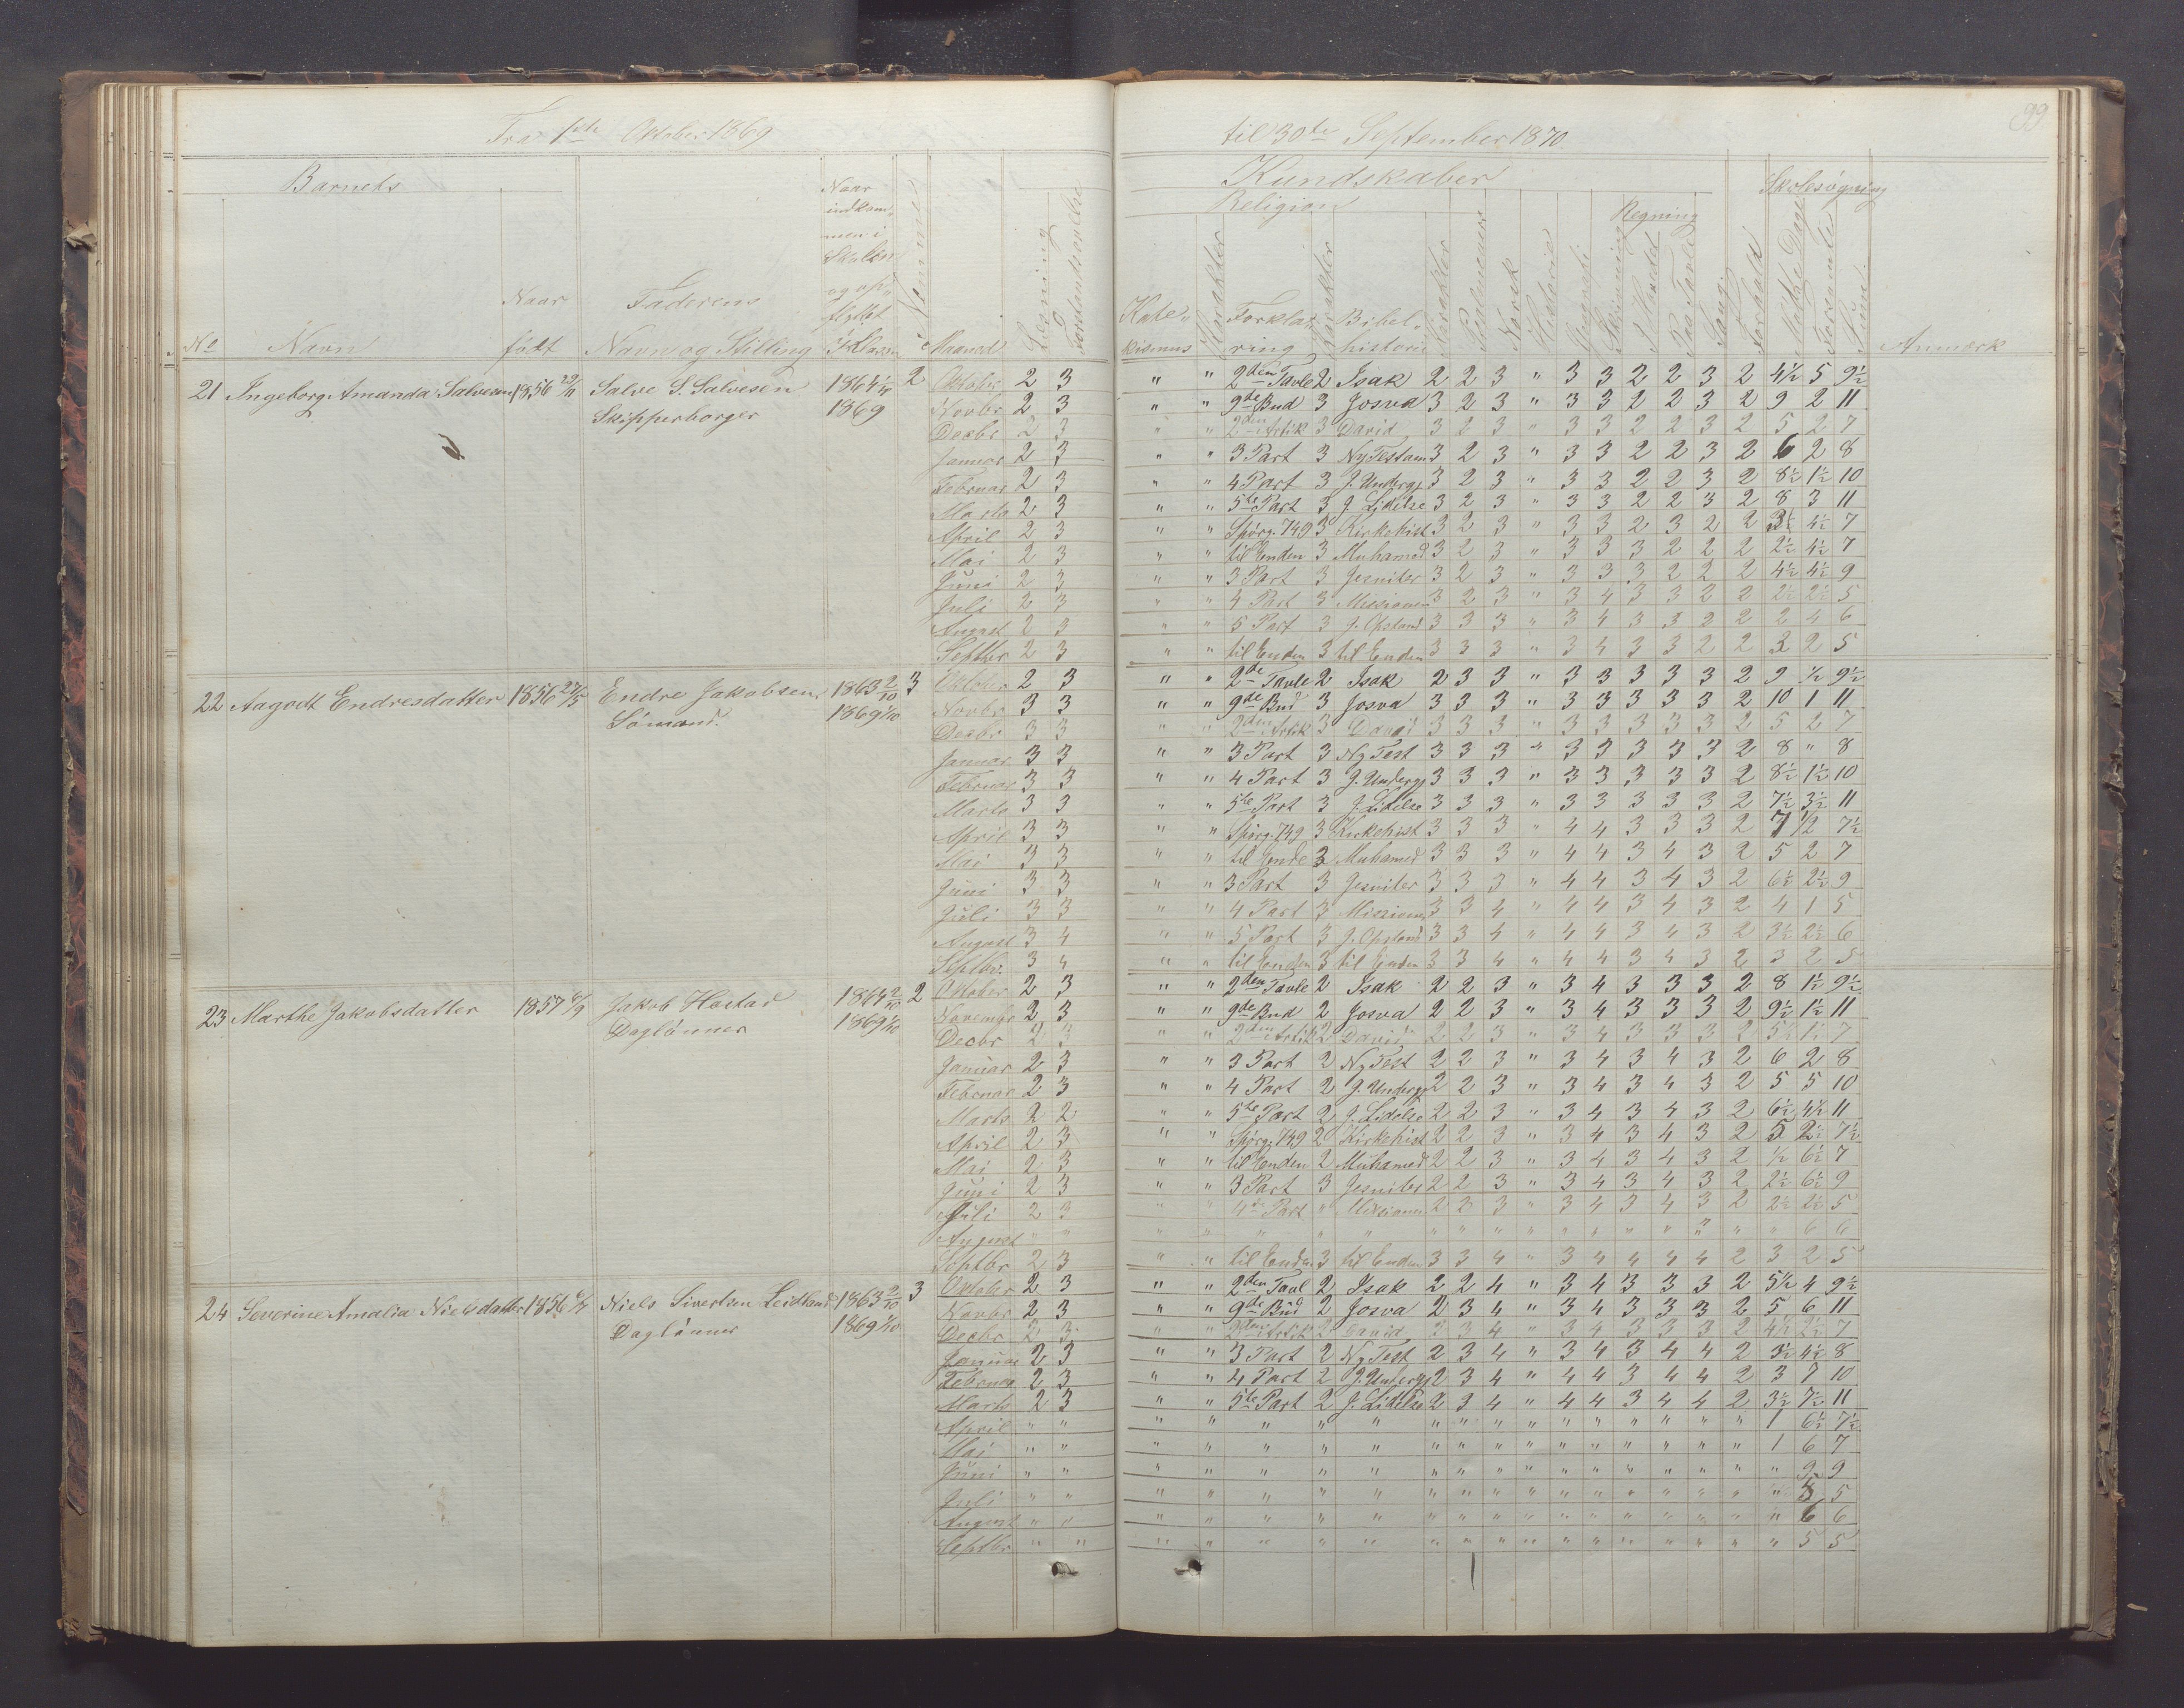 Fra 1ste Oktober 1869
til 30te September 1870
99
Barnets
Kundskaber
Skolesøgning
Religion
Regning
No
Navn
Naar født
Faderens Navn og Stilling
Naar indkommen i Skolen og opflyttet i Klassen
Maaned
Læsning
Forstandsøvelse
Katekismus
Karakter
Forklaring
Karakter
Bibelhistorie
Karakter
Norsk
Historie
Skrivning
i Hovedet
Paa Tavle
Sang
Forhold
Mødte Dage
Forsømte
Sum
Anmærk
21 Ingeborg Amanda Salvesen 1856 29/11 Salve S. Salvesen 1864 2
Skipperborger 1869
Oktober 2 3 " " 2den Tavle 2 Isak 2 2 3 " 3 3 2 2 3 2 4½ 5 9½
Novbr 2 3 " " 9de Bud 3 Josva 3 2 3 " 3 3 2 2 3 2 9 2 11
Decbr 2 3 " " 2den Artik 3 David 3 2 3 " 3 3 2 2 3 2 5 2 7
Januar 2 3 " " 3 Part 3 Ny Testam 3 2 3 " 3 3 2 2 3 2 6 2 8
Februar 2 3 " " 4 Part 3 J. Underg. 3 2 3 " 3 3 2 2 3 2 8½ 1½ 10
Marts 2 3 " " 5te Part 3 J. Lidelse 3 2 3 " 3 3 2 2 3 2 8 3 11
April 2 3 " " Spørg. 749 3 Kirkehist 3 2 3 " 3 3 2 3 2 2 3½ 4½ 7
Mai 2 3 " " til Enden 3 Muhamed 3 2 3 " 3 3 3 2 2 2 2½ 4½ 7
Juni 2 3 " " 3 Part 3 Jesuiter 3 2 3 " 3 3 3 2 2 2 4½ 4½ 9
Juli 2 3 " " 4 Part 3 Missionen 3 2 3 " 3 4 3 3 2 2 2½ 2½ 5
August 2 3 " " 5 Part 3 J. Opstand 3 3 3 " 3 4 3 3 2 2 2 4 6
Septbr 2 3 " " til Enden 3 til Enden 3 3 3 " 3 4 3 3 2 2 3 2 5
22 Aagodt Endresdatter 1856 27/5 Endre Jakobsen 1863 2/10 3
Sømand. 1869 1/10
Oktober 2 3 " " 2de Tavle 2 Isak 2 3 3 " 3 3 3 3 3 2 9 ½ 9½
Novbr 3 3 " " 9de Bud 3 Josva 3 3 3 " 3 3 3 3 3 2 10 1 11
Decbr 3 3 " " 2den Artik 3 David 3 3 3 " 3 3 3 3 3 2 5 2 7
Januar 3 3 " " 3 Part 3 Ny Test 3 3 3 " 3 3 3 3 3 2 8 " 8
Februar 3 3 " " 4 Part 3 J. Underg 3 3 3 " 3 3 3 3 3 2 8½ 1½ 10
Marts 3 3 " " 5te Part 3 J. Lidelse 3 3 3 " 3 3 3 3 3 2 7½ 3½ 11
April 3 3 " " Spørg. 749 3 Kirkehist 3 3 3 " 4 4 3 3 3 2 7 ½ 7½
Mai 3 3 " " til Ende 3 Muhamed 3 3 3 " 4 4 3 4 3 2 5 2 7
Juni 3 3 " " 3 Part 3 Jesuiter 3 3 3 " 4 4 3 4 3 2 6½ 2½ 9
Juli 3 3 " " 4 Part 3 Mission 3 3 4 " 4 4 3 4 3 2 4 1 5
August 3 4 " " 5 Part 3 J. Opstand 3 3 4 " 4 4 3 4 3 2 3½ 2½ 6
Septbr. 3 4 " " til Enden 3 til Enden 3 3 4 " 4 4 3 4 3 2 3 2 5
23 Marthe Jakobsdatter 1857 6/9 Jakob Hastad 1864 2/10 2
Daglønner 1869 1/10
Oktober 2 3 " " 2den Tavle 2 Isak 2 2 3 " 3 4 3 3 3 2 8 1½ 9½
Novembr 2 3 " " 9de Bud 2 Josva 2 2 3 " 3 4 3 3 3 2 9½ 1½ 11
Decbr 2 3 " " 2den Artik 2 David 2 2 3 " 3 4 3 3 3 2 5½ 1½ 7
Januar 2 3 " " 3 Part 2 Ny Test 2 2 3 " 3 4 3 4 3 2 6 2 8
Februar 2 3 " " 4 Part 2 J. Underg 2 2 3 " 3 4 3 4 3 2 5 5 10
Marts 2 2 " " 5te Part 2 J. Lidelse 2 2 3 " 3 4 3 4 3 2 6½ 4½ 11
April 2 3 " " Spørg. 749 2 Kirkehist 2 2 3 " 3 4 3 4 3 2 5 2½ 7½
Mai 2 3 " " til Enden 2 Muhamed 2 2 3 " 3 4 3 4 3 2 ½ 6½ 7
Juni 2 3 " " 3 Part 3 Jesuiter 2 2 3 " 3 4 3 4 3 2 2½ 6½ 9
Juli 2 3 " " 4de Part " Missionen 2 2 3 " 3 4 3 4 3 2 2½ 2½ 5
August " " " " " " " " " " " " " " " " " " 6 6
Septbr 2 3 " " til Enden 3 til Enden 3 3 4 " 3 4 4 4 4 2 3 2 5
24 Severine Amalia Nielsdatter 1856 Niels Sivertsen Leidland 1863 2/10 3
Daglønner 1869 1/10
Oktober 2 3 " " 2den Tavl 2 Isak 2 2 4 " 3 4 3 3 3 2 5½ 4 9½
Novbr 2 3 " " 9de Bud 2 Josva 2 3 4 " 3 4 3 3 3 2 5 6 11
Decbr 2 3 " " 2den Artik 2 David 3 3 4 " 3 4 3 3 3 2 4½ 2½ 7
Januar 2 3 " " 3 Part 2 Ny Test 2 3 4 " 3 4 3 4 4 2 3½ 4½ 8
Februar 2 3 " " 4 Part 2 J. Underg 2 3 4 " 4 4 3 4 4 2 3 7 10
Marts 2 3 " " 5te Part 2 J. Lidelse 2 3 4 " 4 4 3 4 4 2 3½ 7½ 11
April " " " " " " " " " " " " " " " " " 1 6½ 7½
Mai " " " " " " " " " " " " " " " " " 1 6 7
Juni " " " " " " " " " " " " " " " " " " 9 9
Juli " " " " " " " " " " " " " " " " " " 5 5
August " " " " " " " " " " " " " " " " " " 6 6
Septbr " " " " " " " " " " " " " " " " " " 5 5